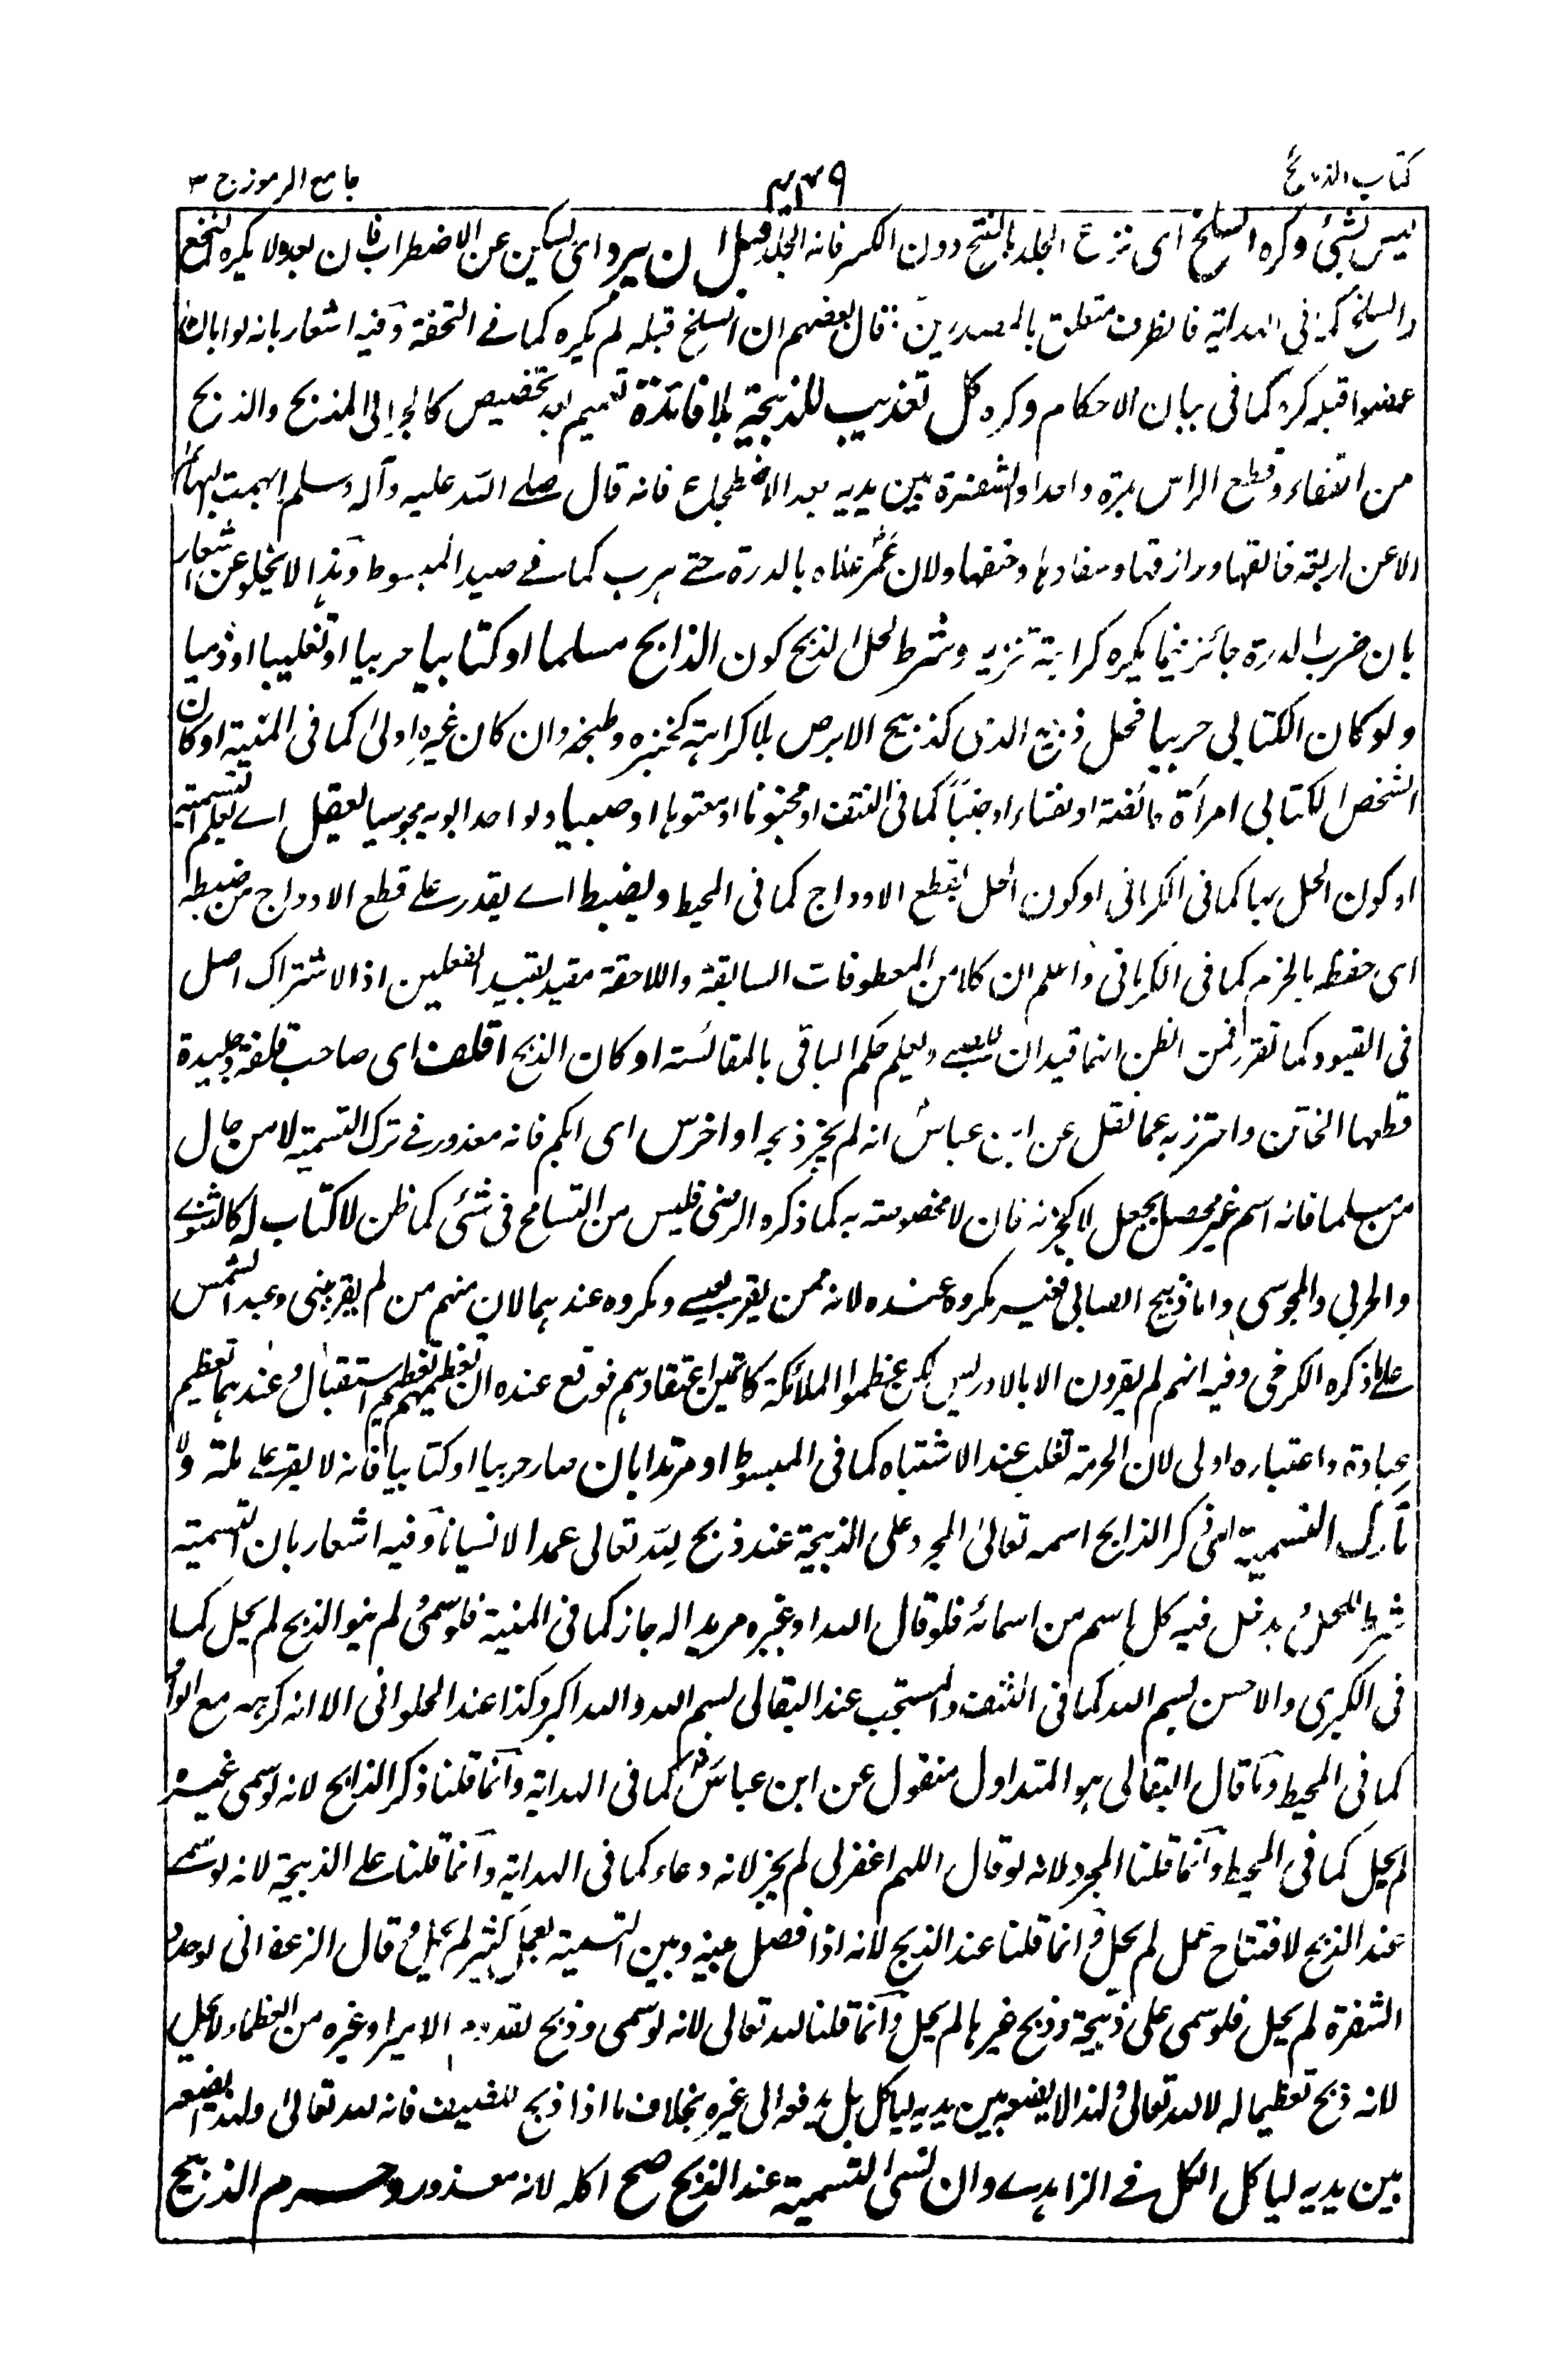 كتاب الذبائح ٤٣٩ جامع الرموز ج ٣
ليس بشئ وكره السلخ اى نزع الجلد بالفتح دون الكسر فانه الجلد قبل ان يبرد اى يسكين عن الاضطراب فان بعده لا يكره النخع
والسلخ كما فى الهداية فالظرف متعلق بالمصدرين قال بعضهم ان السلخ قبله لم يكره كما فے التحفة وفيه اشعار بانه لو ابان
عضوا قبله كره كما فى بيان الاحكام وكره كل تعذيب للذبيحة بلا فائدة تعميم بعد تخصيص كالجر الى المذبح والذبح
من القفاء وقطع الراس بمرة واحداد الشفرة بين يديه بعد الاضطجاع فانه قال صلے الله عليه وآله وسلم ابهمت البهائم
الا عن اربعة خالقها ورازقها وسفادها وحتفها ولان عمر علاه بالدرة حتے هرب كما فے صيد المبسوط وهذا لا يخلو عن اشعار
بان ضرب الدرة جائز فيما يكره كراهة تنزيه وشرط لحل الذبح كون الذابح مسلما او كتابيا حربيا او تغلبيا او ذميا
ولو كان الكتابى حربيا فحل ذبيح الذى كذبيح الابرص بلا كراهته كخبزه وطبخه وان كان غيره اولى كما فى المنية او كان
الشخص الكتابى امرأة حائضة او نفساء او جنبا كما فى النتف او مجنونا او معتوها او صبيا ولو احد ابويه مجوسيا يعقل اے يعلم التسمية
او كون الحل بها كما فى الكرمانى او كون الحل بقطع الاوداج كما فى المحيط ويضبط اے يقدر على قطع الاوداج من ضبطه
اى حفظه بالحزم كما فى الكرمانى واعلم ان كلا من المعطوفات السابقة واللاحقة مقيد بقيد الفعلين اذ الاشتراك اصل
فى القيود كما تقرر فمن الظن انهما قيدان للصبے وليعلم حكم الباقى بالمقائسته او كان الذبح اقلف اى صاحب قلفة وجليدة
قطعها الخاتن واحترز به عما نقل عن ابن عباس انه لم يجز ذبحه او اخرس اى ابكم فانه معذور فے ترك التسمية لا من حال
من مسلما فانه اسم غير محصل بجعل لا كجزئه فان لا مخصوصته به كما ذكره الرضى فليس من التسامح فى شئى كما ظن لا كتاب له كالثنوے
والحربى والمجوسى واما ذبيح الصابى فغير مكروه عنده لانه ممن يقرب بعيسے ومكروه عندهما لان منهم من لم يقر بنبى وعبد الشمس
على ما ذكره الكرخى وفيه انهم لم يقرون الا بالادريس لكن عظموا الملائكة كاتمين اعتقادهم فوقع عنده ان تعظيمهم تعظيم استقبال وعندهما تعظيم
عبادة واعتباره اولى لان الحرمة تغلب عند الاشتباه كما فى المبسوط او مرتدا بان صار حربيا او كتابيا فانه لا يقر على ملة ولا
تارك التسمية اى ذكر الذابح اسمه تعالى المجرد على الذبيحة عند ذبح لله تعالى عمدا لا نسيانا وفيه اشعار بان التسمية
شرط للحل ويدخل فيه كل اسم من اسمائه فلو قال الله او غيره مريدا له جاز كما فى المنية فلو سمى ولم ينو الذبح لم يحل كما
فى الكبرى والاحسن بسم الله كما فى النتف والمستحب عند البقالى بسم الله والله اكبر وكذا عند الحلوانى الا انه كره مع الواو
كما فى المحيط وما قال البقالى هو المتداول منقول عن ابن عباس كما فى الهداية وانما قلنا ذكر الذابح لانه لو سمى غيره
لم يحل كما فى المحيط وانما قلنا المجرد لانه لو قال اللهم اغفر لى لم يجز لانه دعاء كما فى الهداية وانما قلنا على الذبيحة لانه لو سمے
عند الذبح لافتتاح عمل لم يحل وانما قلنا عند الذبح لانه اذا فصل بينه وبين التسمية بعمل كثير لم يحل وقال الزعفرانى لو حد
الشفرة لم يحل فلو سمى على ذبيحة وذبح غيرها لم يحل وانما قلنا لله تعالى لانه لو سمى وذبح لقدوم الامير او غيره من العظماء لا يحل
لانه ذبح تعظيما له لا لله تعالى ولهذا لا يضعه بين يديه لياكل بل يدفعه الى غيره بخلاف ما اذا ذبح للضيف فانه لله تعالى ولهذا يضعه
بين يديه لياكل الكل فے الزاهدے وان نسى التسمية عند الذبح صح اكله لانه معذور وحرم الذبيح